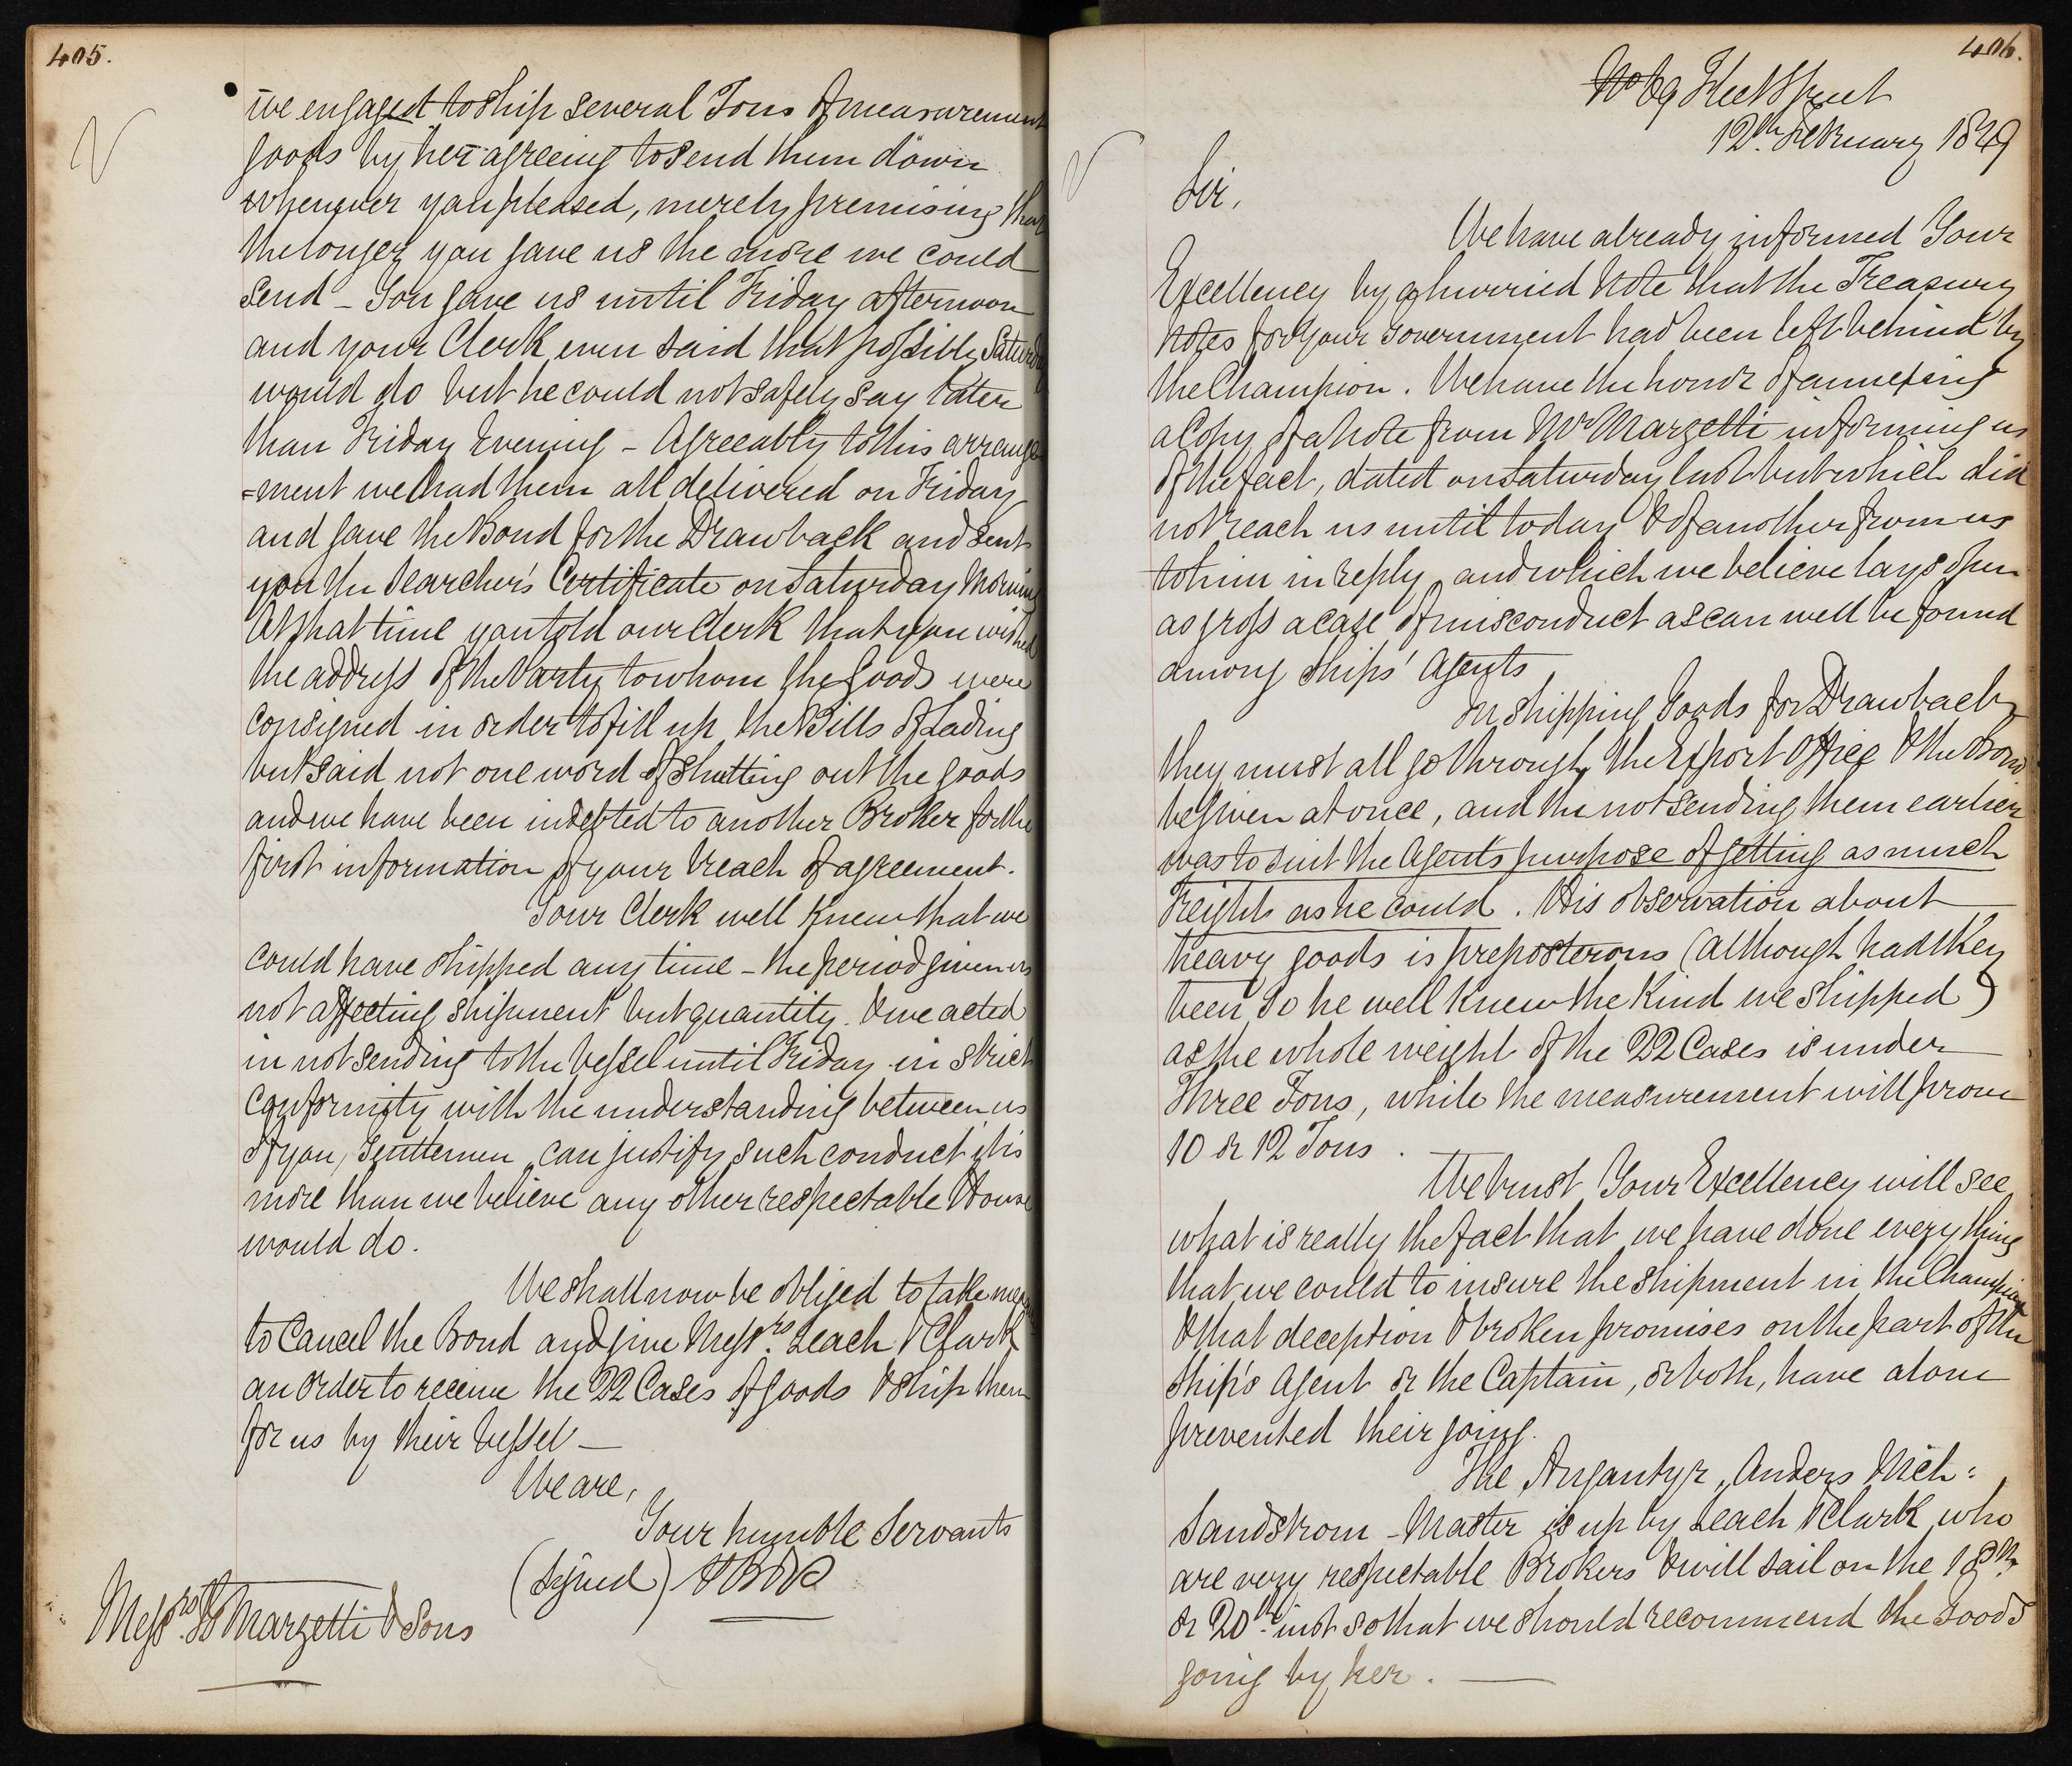 405.
we engaged to ship several Tons of measurement
goods by her agreeing to send them down
whenever you pleased, merely premising that
the longer you gave us the more we could
send – You gave us until Friday afternoon
and your Clerk even said that possibly Saturday
would do but he could not safely say later
than Friday Evening – Agreeably to this arrange
=ment we had them all delivered on Friday
and gave the Bond for the Drawback and sent
you the Searcher's Certificate on Saturday Morning
At that time you told our Clerk that you wished
the address of the Party to whom the Goods were
consigned in order to fill up the Bills of Lading
but said not one word of shutting out the goods
and we have been indebted to another Broker for the
first information of your breach of agreement.
Your Clerk well knew that we
could have shipped any time – the period given us
not affecting shipment but quantity. & we acted
in not sending to the Vessel until Friday in strict
conformity with the understanding between us
If you, Gentlemen, can justify such conduct it is
more than we believe any other respectable House
would do.
We shall now be obliged to take means
to Cancel the Bond and give Messrs. Leach & Clark
an Order to receive the 22 Cases of goods & ship them
for us by their Vessel –
We are,
Your humble Servants
(Signed) PB&P
Messrs. Marzetti & Sons
406.
No 69 Fleet Street
12th February 1849
Sir,
We have already informed Your
Excellency by a hurried Note that the Treasury
Notes for Your Government had been left behind by
the Champion. We have the honor of annexing
a Copy of a Note from Mr Marzetti informing us
of the fact, dated on Saturday last but which did
not reach us until today & of another from us
to him in reply, and which we believe lays open
as gross a case of misconduct as can well be found
among Ships' Agents
In shipping Goods for Drawback
they must all go through the Export Office & the Bond
be given at once, and the not sending them earlier
was to suit the Agents purpose of getting as much
Freight as he could. His observation about
heavy goods is preposterous (although had they
been so he well knew the kind we shipped)
as the whole weight of the 22 Cases is under
Three Tons, while the measurement will prove
10 or 12 Tons.
We trust Your Excellency will see
what is really the fact that we have done every thing
that we could to insure the shipment in the Champion
& that deception & broken promises on the part of the
Ship's Agent or the Captain, or both, have alone
prevented their going.
The Angantyr, Anders Nich:
Sandstrom – Master is up by Leach & Clark who
are very respectable Brokers & will sail on the 18th
or 20th inst so that we should recommend the Goods
going by her. —